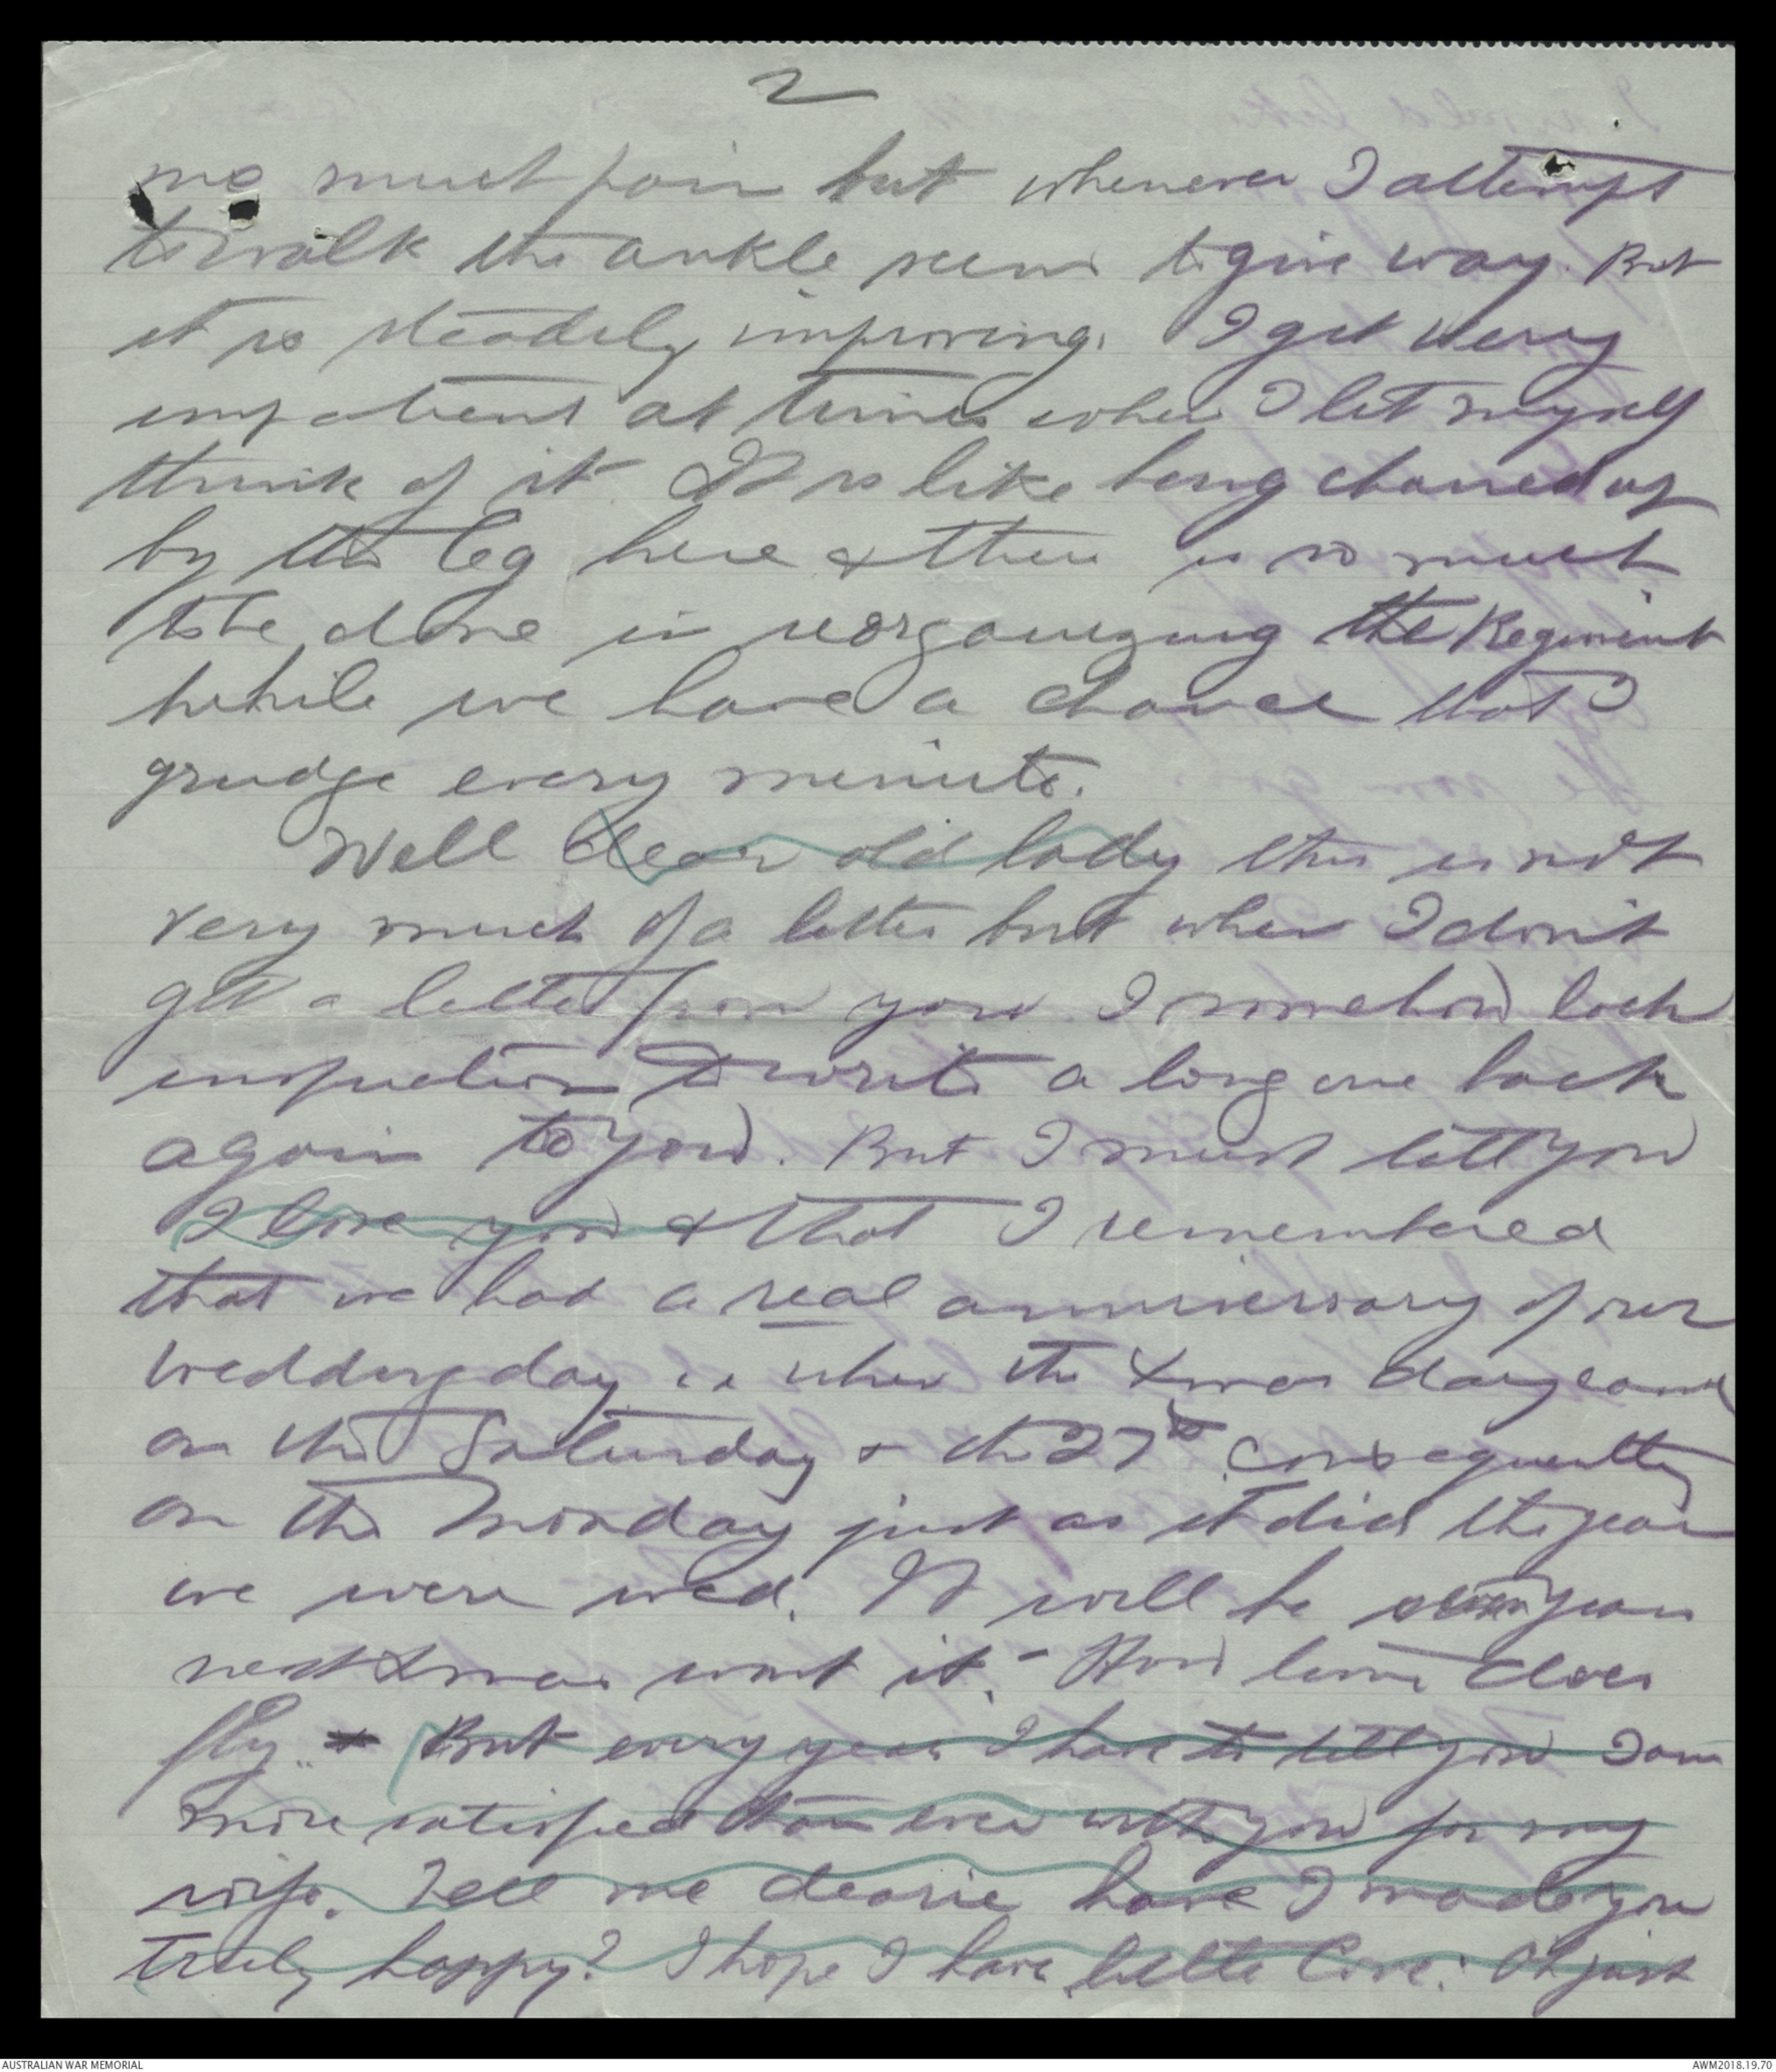 2
me much pain but whenever I attempt
to walk the ankle seems to give way. But
it is steadily improving. I get very
impatient at times when I let myself
think of it. It is like being chained up
by the leg here & there is so much
to be done in reorganizing the Regiment
while we have a chance that I
grudge every minute.
Well dear old lady this is not
very much of a letter but when I don't
get a letter from you I somehow lack
inspiration to write a long one back
again to you. But I must tell you
I love you & that I remembered
that we had a real anniversary of our
wedding day ie when the Xmas day came
on the Saturday & the 27th consequently
on the Monday just as it did the year
we were wed. It will be years
next Xmas wont it. How time does
fly. But every year I have to tell you I am
more satisfied than ever with you for my
wife. Tell me dearie have I made you
truly happy? I hope I have little love. Oh just
AUSTRALIAN WAR MEMORIAL
AWM2018.19.70